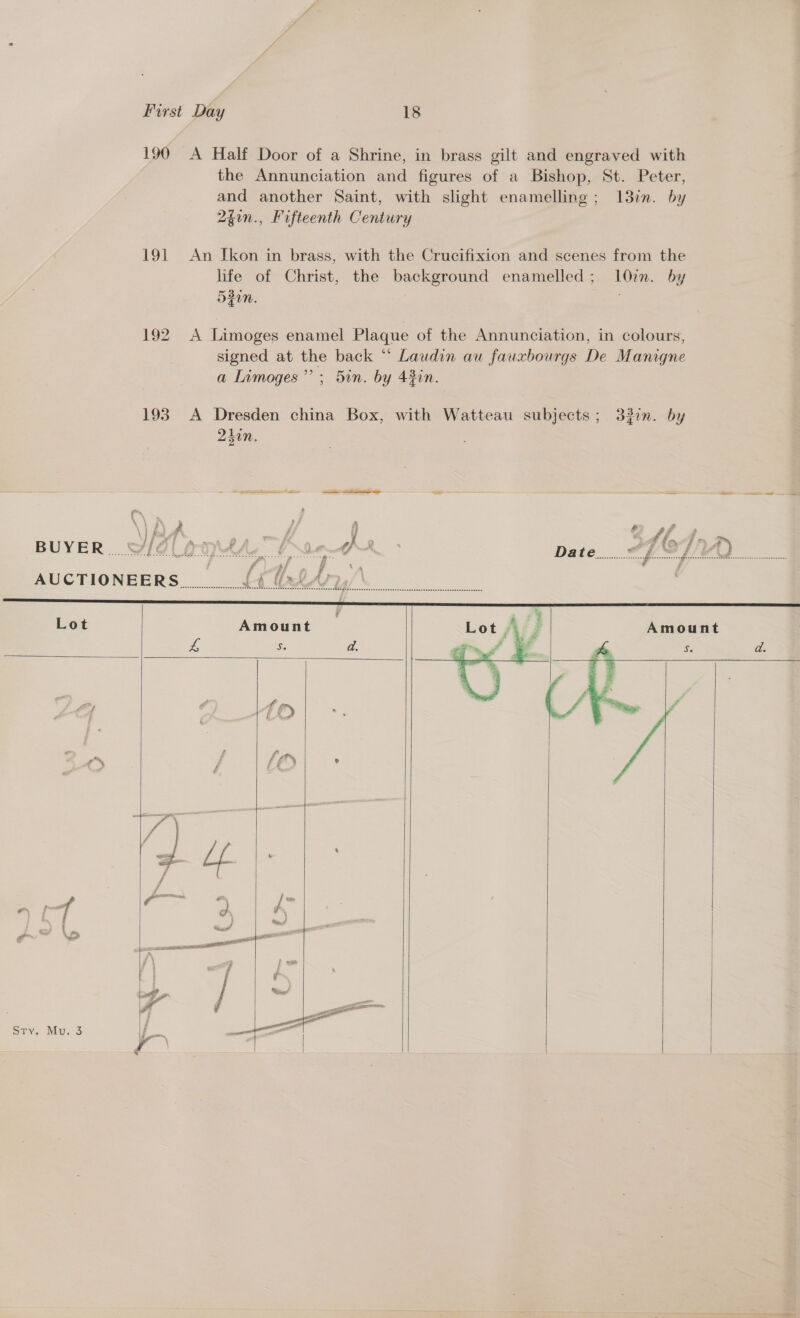 First Day 18
190 A Half Door of a Shrine, in brass gilt and engraved with
the Annunciation and figures of a Bishop, St. Peter,
and another Saint, with slight enamelling; 13in. by
2¾in., Fifteenth Century
191 An Ikon in brass, with the Crucifixion and scenes from the
life of Christ, the background enamelled; 10in. by
5¾in.
192 A Limoges enamel Plaque of the Annunciation, in colours,
signed at the back “ Laudin au fauxbourgs De Manigne
a Limoges ”; 5in. by 4¾in.
193 A Dresden china Box, with Watteau subjects; 3¾in. by
2½in.
BUYER
Date
AUCTIONEERS
Lot Amount Lot Amount
£ s. d. £ s. d.
29 2 10 .
30 1 10 .
4 .
251 3 5
7 5
Sty. Mu. 3